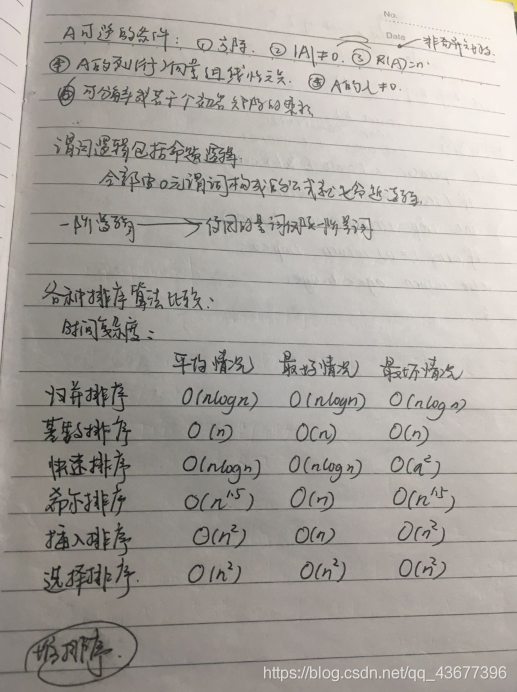 No.
Date
非奇异矩阵
A可逆的条件: ① 方阵. ② |A|≠0. ③ R(A)=n
④ A的列(行)向量组线性无关. ⑤ A的λ≠0.
⑥ 可分解成若干个初等矩阵的乘积
谓词逻辑包括命题逻辑
全部由0元谓词构成的公式就是命题逻辑.
一阶逻辑 → 使用的量词仅限一阶量词
各种排序算法比较:
时间复杂度:
平均情况 最好情况 最坏情况
归并排序 O(nlogn) O(nlogn) O(nlogn)
基数排序 O(n) O(n) O(n)
快速排序 O(nlogn) O(nlogn) O(n²)
希尔排序 O(n^1.5) O(n) O(n^1.5)
插入排序 O(n²) O(n) O(n²)
选择排序. O(n²) O(n²) O(n²)
堆排序.
https://blog.csdn.net/qq_43677396